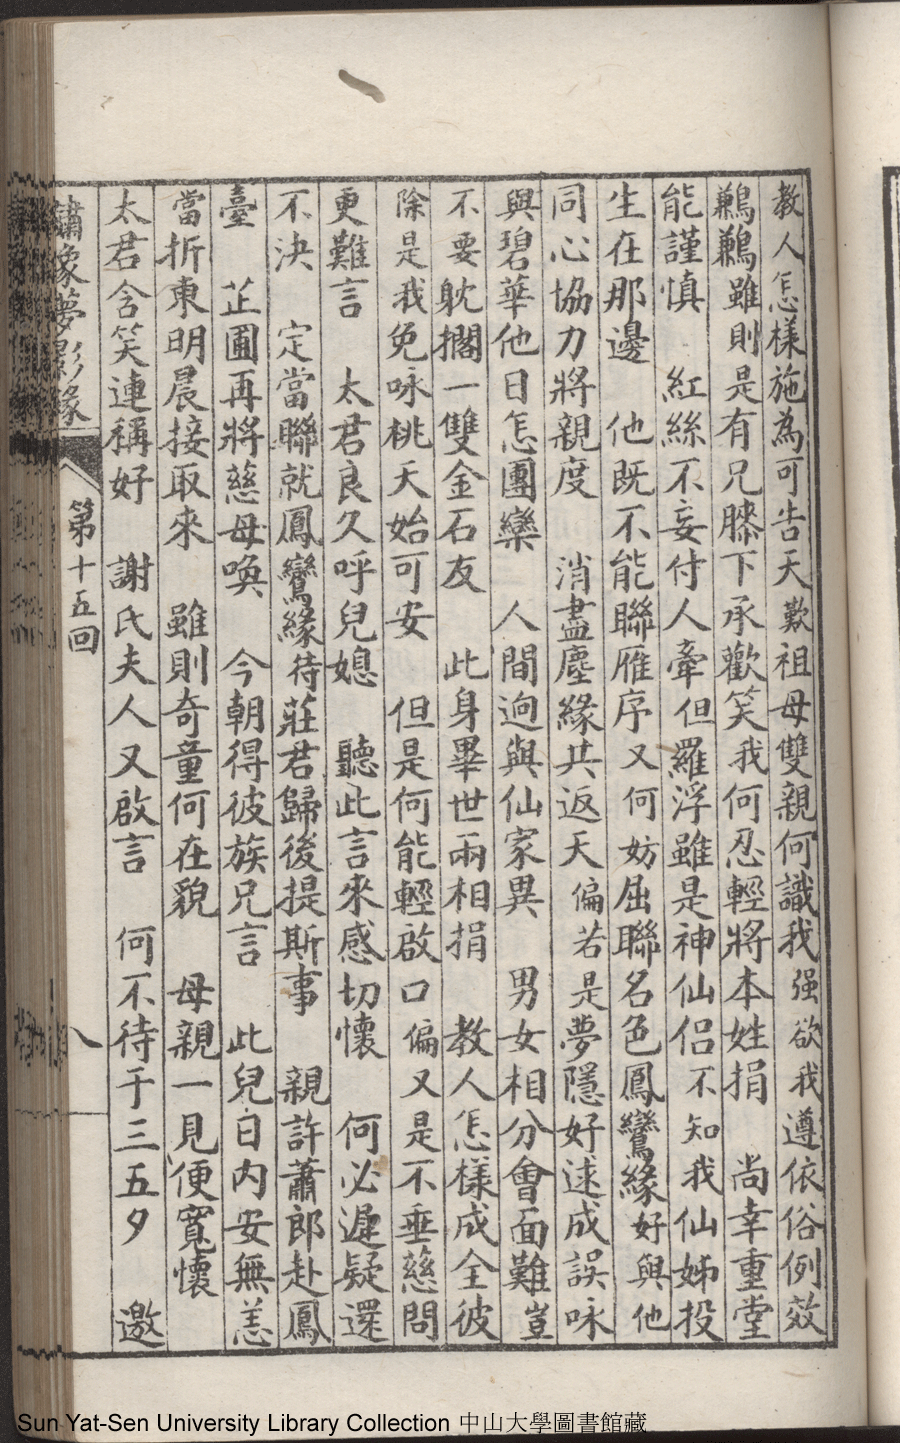 教人怎樣施為可告天歎祖母雙親何識我强欲我遵依俗例效
鶼鶼雖則是有兄膝下承歡笑我何忍輕將本姓捐　尚幸重堂
能謹慎　紅絲不妄付人牽但羅浮雖是神仙侶不知我仙姊投
生在那邊　他既不能聯雁序又何妨屈聯名色鳳鸞緣好與他
同心協力將親度　消盡塵緣共返天偏若是夢隱好逑成誤咏
與碧華他日怎團欒　人間逈與仙家異　男女相分會面難豈
不要躭擱一雙金石友　此身畢世兩相捐　教人怎樣成全彼
除是我免咏桃夭始可安　但是何能輕啟口偏又是不垂慈問
更難言　太君良久呼兒媳　聽此言來感切懷　何必遲疑還
不決　定當聯就鳳鸞緣待莊君歸後提斯事　親許蕭郎赴鳳
臺　芷圃再將慈母喚　今朝得彼族兄言　此兒日內安無恙
當折柬明晨接取來　雖則奇童何在貌　母親一見便寬懷
太君含笑連稱好　謝氏夫人又啟言　何不待于三五夕　邀
繡像夢影緣　第十五回　八
Sun Yat-Sen University Library Collection 中山大學圖書館藏